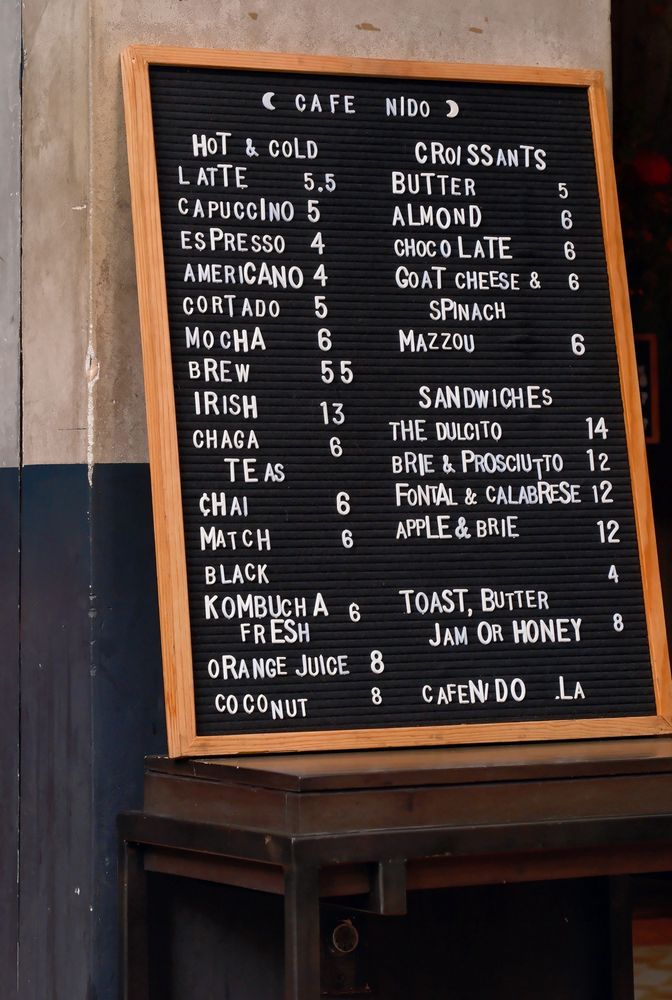 CAFE NIDO
HOT & COLD
LATTE 5.5
CAPUCCINO 5
ESPRESSO 4
AMERICANO 4
CORTADO 5
MOCHA 6
BREW 55
IRISH 13
CHAGA 6
TEAS
CHAI 6
MATCH 6
BLACK
KOMBUCHA 6
FRESH
ORANGE JUICE 8
COCONUT 8
CROISSANTS
BUTTER 5
ALMOND 6
CHOCOLATE 6
GOAT CHEESE & 6
SPINACH
MAZZOU 6
SANDWICHES
THE DULCITO 14
BRIE & PROSCIUTTO 12
FONTAL & CALABRESE 12
APPLE & BRIE 12
4
TOAST, BUTTER
JAM OR HONEY 8
CAFENIDO .LA